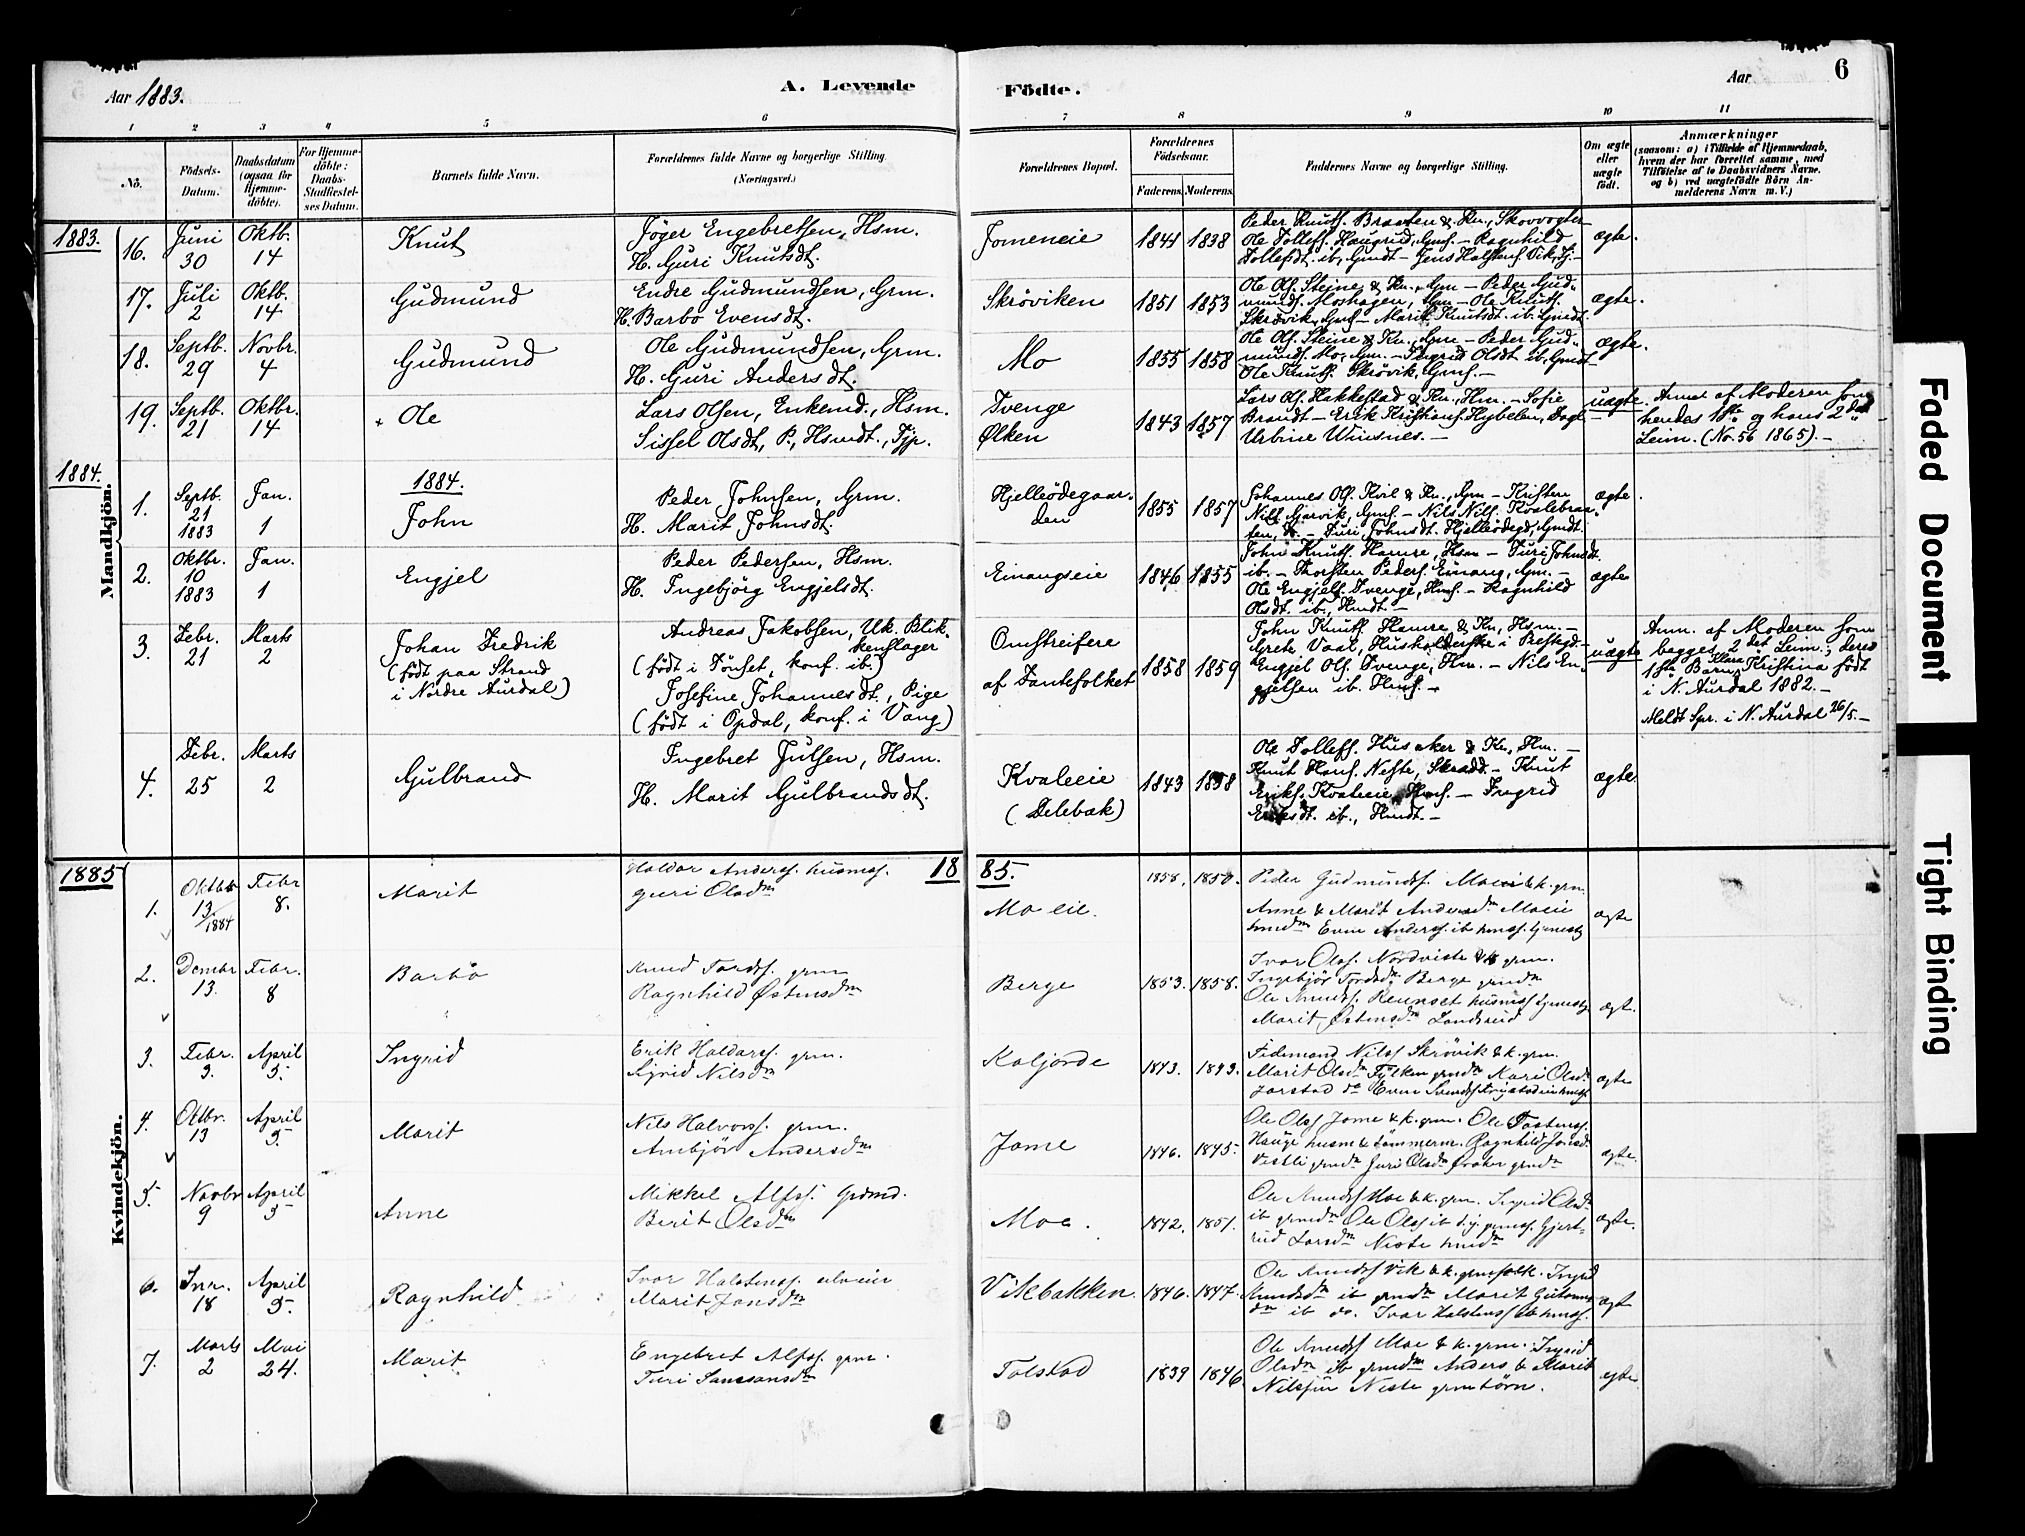 Aar 1883.
A. Levende
Födte.
Aar
6
1 2 3 4 5 6 7 8 9 10 11
No.
Födsels-
Datum.
Daabsdatum
(ogsaa for
Hjemme-
döbte).
For Hjemme-
döbte:
Daabs-
Stadfæstel-
ses Datum.
Barnets fulde Navn.
Forældrenes fulde Navne og borgerlige Stilling
(Næringsvei.)
Forældrenes Bopæl.
Forældrenes
Födselsaar.
Faderens. Moderens.
Faddernes Navne og borgerlige Stilling.
Om ægte
eller
uægte
födt.
Anmærkninger
(saasom: a) i Tilfælde af Hjemmedaab,
hvem der har forrettet samme, med
Tilföielse af to Daabsvidners Navne.
og b) ved uægtefödte Börn An-
melderens Navn m. V.)
Mandkjön.
1883.
16.
Juni
30
Oktb.
14
Knut
Jöger Engebretsen, Hsm.
H. Guri Knutsdt.
Jomeneie
1841 1838
Peder Knuts. Braaten & Kn., Skovvogter
Ole Tollefs. Haugrud, Gmf. – Ragnhild
Tollefsdt. ib, Gmdt – Jens Halstens. Vik, Tj. –
ægte.
17.
Juli
2
Oktb.
14
Gudmund
Endre Gudmundsen, Grm.
H. Barbo Evensdt.
Skröviken
1851 1853
Ole Ols. Steine & Kn., Gm – Peder Gud-
munds. Moshagen, Gm – Ole Knuts.
Skrövik, Gmf – Marit Knutsdt. ib. Gmdt.
ægte.
18.
Septb.
29
Novbr.
4
Gudmund
Ole Gudmundsen, Grm.
H. Guri Andersdt.
Mo
1855 1858
Ole Ols. Steine & Kn., Gm – Peder Gud-
munds. Mo, Gm. – Ingrid Olsdt. ib, Gmdt –
Ole Knuts. Skrövik, Gmf. –
ægte.
19.
Septb.
21
Oktbr.
14
Ole
Lars Olsen, Enkemd., Hsm.
Sissel Olsdt, P., Hsmdt., Tjp.
Tvenge
Ølken
1843 1857
Lars Ols. Hakkestad & Kn., Hm. – Sofie
Brandt – Erik Kristians. Hybelen, Dagl. –
Urbine Winsnes. –
uægte.
Anmt af Moderen som
hendes 1ste og hans 2det
Leim. (No. 56 1865). –
1884.
1884.
1.
Septb.
21
1883
Jan.
1
John
Peder Johnsen, Grm.
H. Marit Johnsdt.
Hjelleödegaar-
den
1855 1857
Johannes Ols. Kvil & Kn., Gm – Kristen
Nils. Gjervik, Gmf. – Nils Nils. Kvalebraa-
ten, – Turi Johnsdt. Hjelleödegd, Gmdt.
ægte.
2.
Oktbr.
10
1883
Jan.
1
Engjel
Peder Pedersen, Hsm.
H. Ingebjörg Engjelsdt.
Einangseie
1846 1855
John Knuts. Hamre, Hsm – Turi Johnsdt.
ib. – Thorsten Peders. Einang, Gm. –
Ole Engjels. Tvenge, Hmf. – Ragnhild
Olsdt. ib., Hmdt. –
ægte
3.
Febr.
21
Marts
2
Johan Fredrik
(födt paa Strand
i Nordre Aurdal)
Andreas Jakobsen, Uk. Blik-
kenslager
(födt i Tönset, konf. ib.)
Josefine Johannesdt., Pige
(födt i Opdal, konf. i Vang)
Omstreifere
af Tantefolket
1858 1859
John Knuts. Hamre & Kn, Hsm. –
Grete Vaal, Husholderske i Prestegd. –
Engjel Ols. Tvenge, Hm. – Nils En-
gjelsen ib. Hmf. –
uægte
Anm. af Moderen som
begges 2det Leim.; deres
1ste Barn, Klara Kristina födt
i N. Aurdal 1882. –
Meldt Spr. i N. Aurdal 26/5. –
4.
Febr.
25
Marts
2
Gulbrand
Ingebret Julsen, Hsm.
H. Marit Gulbrandsdt.
Kvaleeie
(Delebæk)
1843 1858
Ole Tollefs. Husaker & Kn, Hm. –
Knut Hans. Neste, Skradd. – Knut
Eriks. Kvaleeie, Hmf. – Ingrid
Eriksdt. ib., Hmdt. –
ægte
Kvindekjön.
1885
18 85.
1.
Oktbr
13/1884
Febr
8.
Marit
Haldor Anderss. husms.
Guri Olsdn
Mo eie.
1858. 1850.
Peder Gudmunds. Moeie & k. grm.
Anne & Marit Andersdn Moeie
husmdn Even Anderss. ib hmss. tjeneste
ægte
2.
Dembr
13.
Febr.
8
Barbo
Knud Tordss. grm
Ragnhild Østensdn
Berge
1853. 1858.
Ivar Olss. Nordviste & k grm.
Ingebjör Tordsdn Berge grmdn
Ole Knuds. Reunset husmss tjeneste
Marit Østensdn Landsrud
ægt.
3.
Febr.
3.
April
5.
Ingrid
Erik Haldorss. grm.
Sigrid Nilsdn
Kaljorde
1843. 1843.
Fidemand Nilss Skrövik & k. grm.
Marit Olsdn Fylken grmdn Kari Olsdn
Jarstad do Even Svends
ægte
4.
Otbr.
13
April
5.
Marit
Nils Halvorss. grm.
Ambjör Andersdn
Jome
1846. 1845.
Ole Olss Jome & k. grm. Ole Tostenss.
Hauge husm & tömmerm. Ragnhild Jonsd.
Vestli grmdn Guri Olsdn Øvater grmdn
ægte.
5.
Novbr
9
April
5
Anne
Mikkel Alfss. Grdmd.
Berit Olsdn
Moe.
1842. 1851.
Ole Knudss Moe & k. grm. Ingrid Olsdn
ib grmdn Ole Olss ib d. y. grmss. Gjert-
rud Larsdn Neste hmdn
ægte.
6.
Jnr.
18
April
5.
Ragnhild
Ivar Halstenss.
Marit Jonsdn
Vikebakken.
1846. 1847.
Ole Knudss Vik & k. grmfolk. Ingrid
Knudsdn ib grmdn Marit
dn ib do. Ivar Halstenss ib hmss.
ægt
7.
Marts
2
Mai
24.
Marit
Engebret Alfss. grm.
Turi Samsonsdn
Tolstad
1839 1846
Ole Knudss Moe & k. grm. Ingrid
Olsdn ib grmdn Anders & Marit
Nilsson Neste grmbörn.
egte
Faded Document
Tight Binding